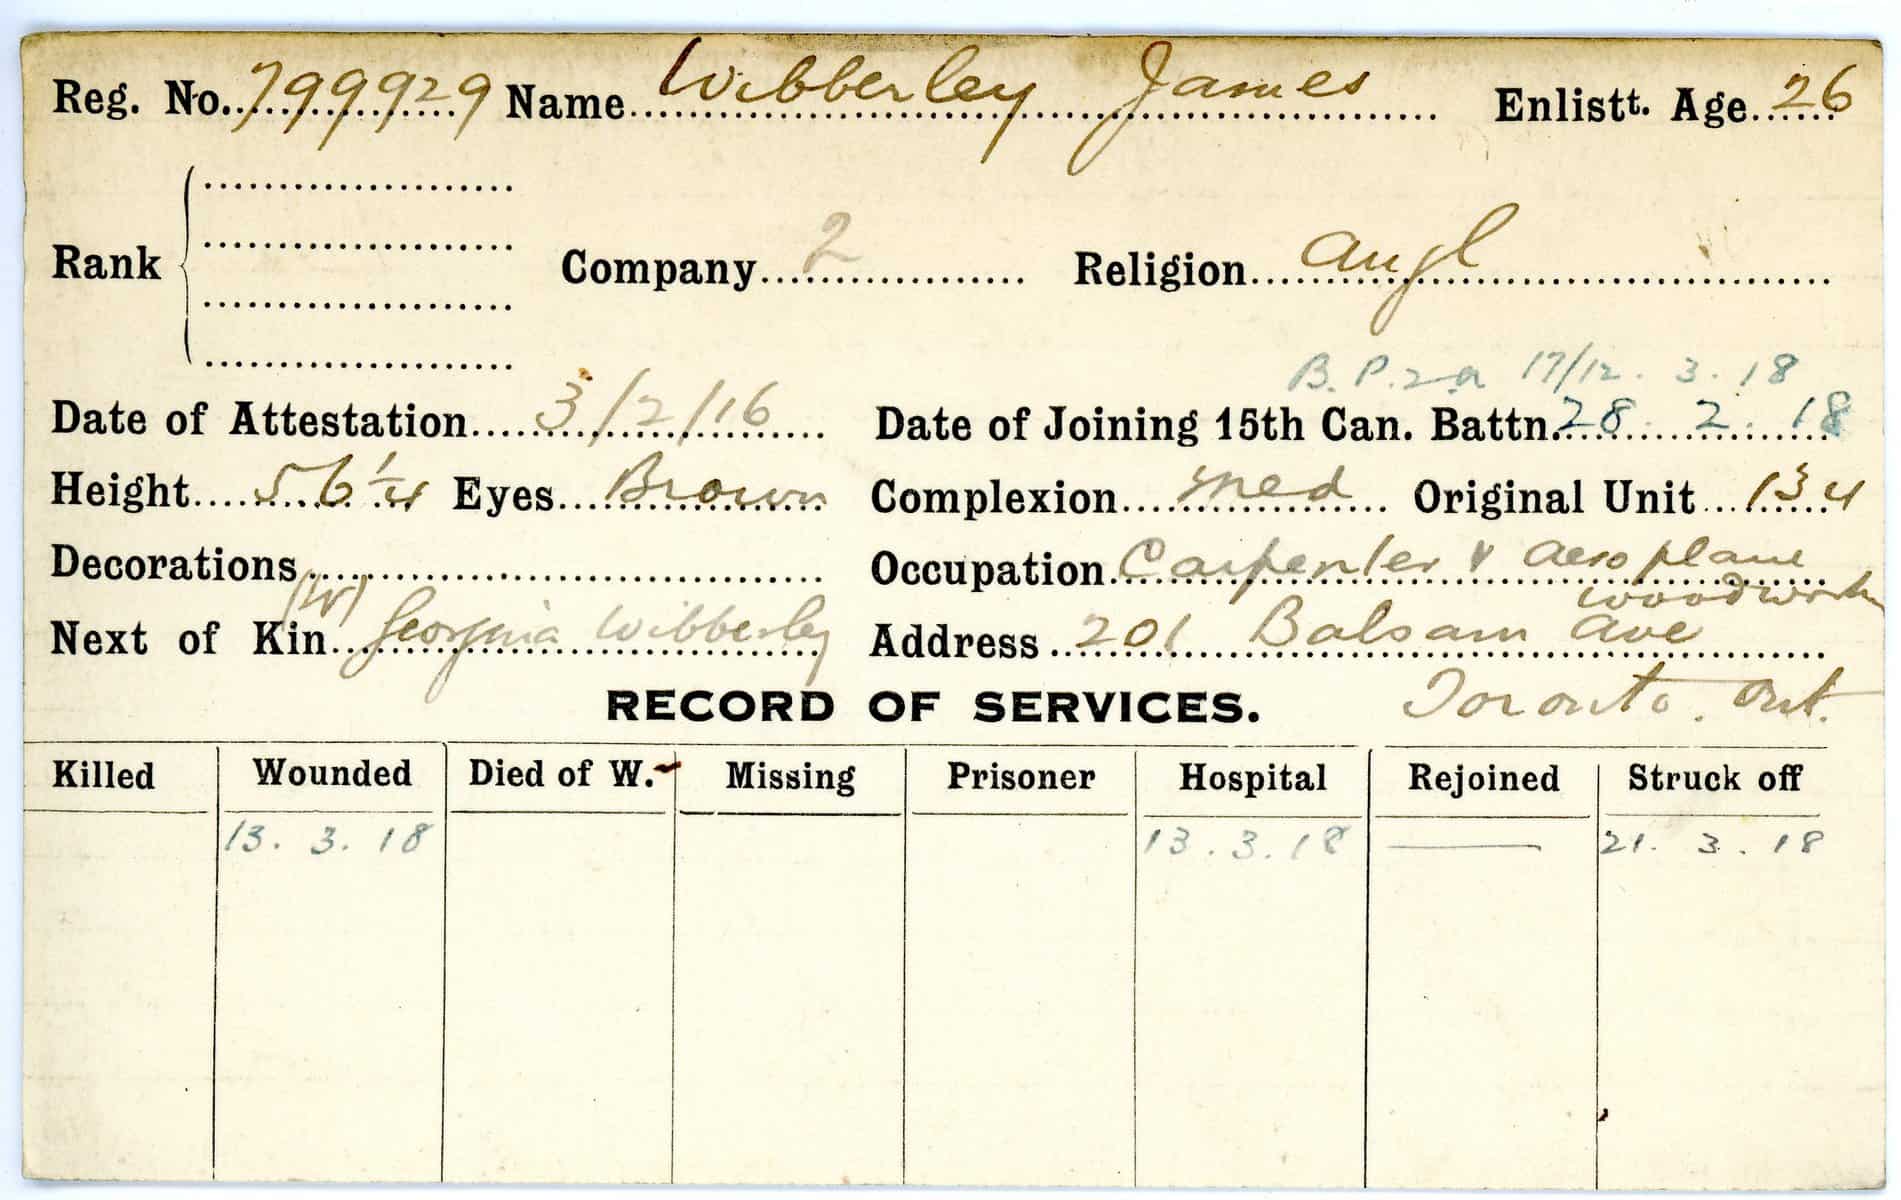 Reg. No. 799929 Name Wibberley James Enlistt. Age 26
Rank Company 2 Religion Angl
B. P. 2a 17/12. 3. 18
Date of Attestation 3/2/16 Date of Joining 15th Can. Battn. 28. 2. 18
Height 5 6 1/4 Eyes Brown Complexion Med Original Unit 134
Decorations Occupation Carpenter & aeroplane
woodworker
Next of Kin (W) Georgina Wibberley Address 201 Balsam Ave
Toronto. Ont.
RECORD OF SERVICES.
Killed Wounded Died of W. Missing Prisoner Hospital Rejoined Struck off
13. 3. 18 13. 3. 18 — 21. 3. 18